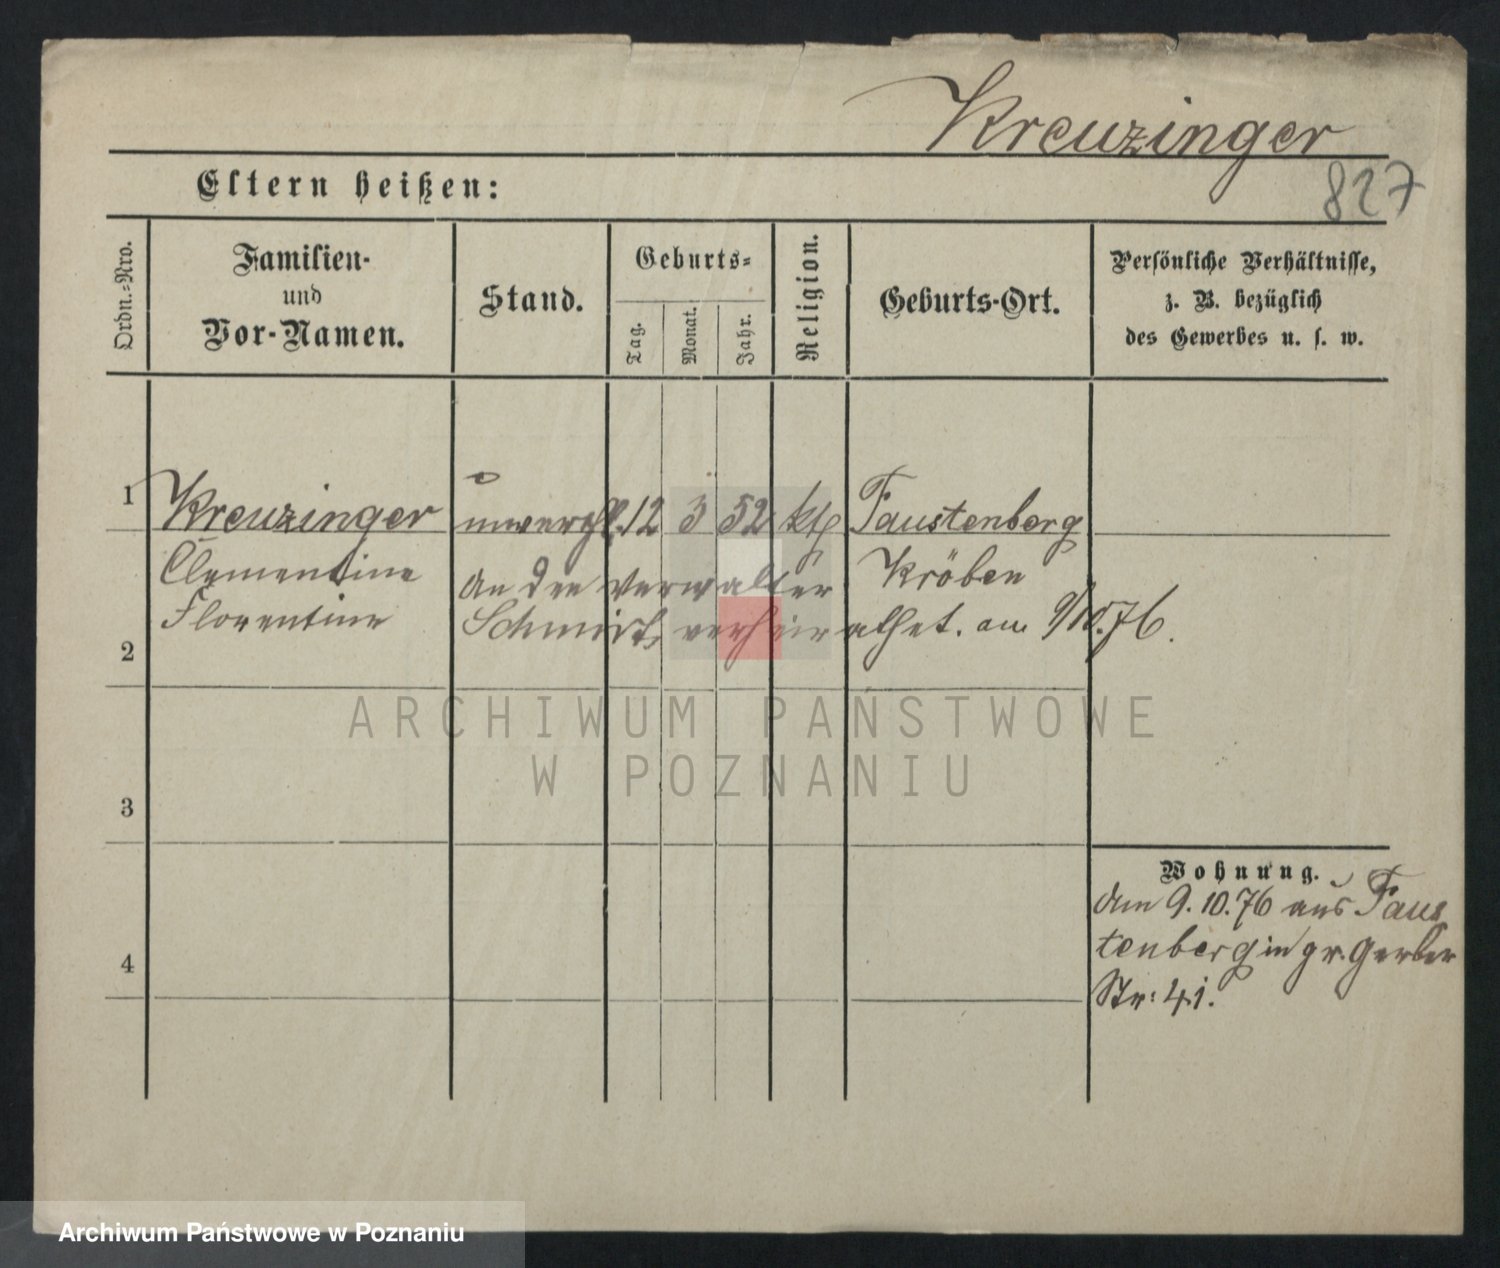 Kreuzinger
827
Eltern heißen:
Ordn.-Nro.
Familien-
und
Vor-Namen.
Stand.
Geburts-
Tag.
Monat.
Jahr.
Religion.
Geburts-Ort.
Persönliche Verhältnisse,
z. B. bezüglich
des Gewerbes u. s. w.
1 Kreuzinger unverehl. 12 3 52 kth Faustenberg
Clementine an den Verwalter Kröben
Florentine verheirathet. am 9/10.76.
2
3
4
Wohnung.
Am 9.10.76 aus Faus
tenberg in gr. Gerber
Str: 41.
ARCHIWUM PAŃSTWOWE
W POZNANIU
Archiwum Państwowe w Poznaniu